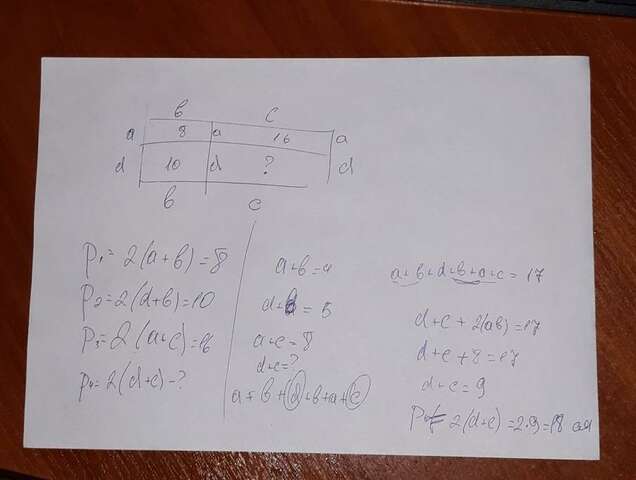 в c
a 8 a 16 a
d 10 d ? d
в c
P₁= 2(a+в)=8
P₂=2(d+в)=10
P₃=2(a+c)=16
P₄=2(d+c)-?
a+в=4
d+в=5
a+c=8
d+c=?
a+в+d+в+a+c
a+в+d+в+a+c=17
d+c+2(aв)=17
d+c+8=17
d+c=9
P₄= 2(d+c)=2·9=18 см